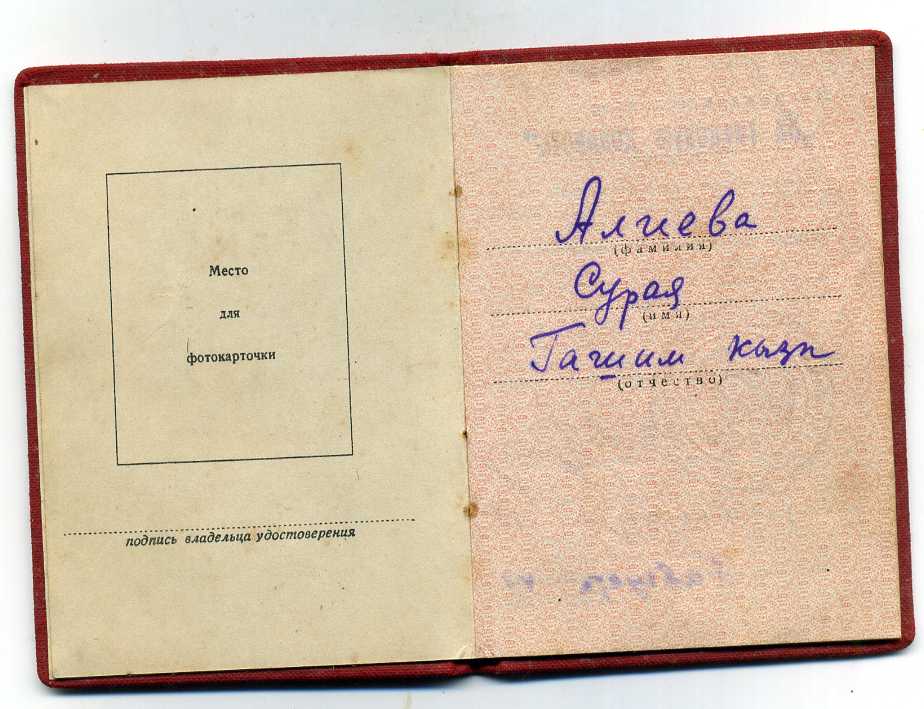 Место
для
фотокарточки
подпись владельца удостоверения
Алиева
(фамилия)
Сурая
(имя)
Гашим кызы
(отчество)